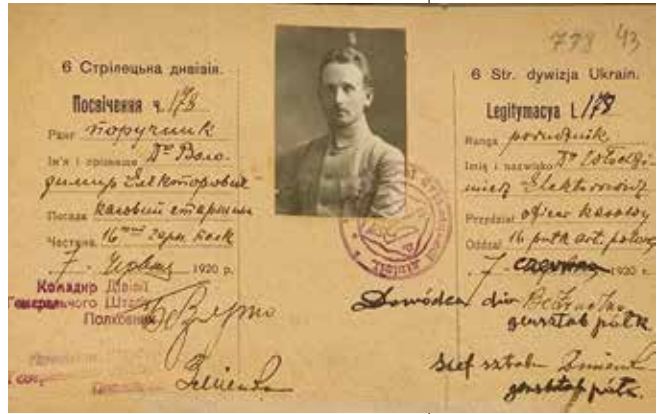 798 43
6 Стрілецька дивізія.
Посвічення ч. 178
Ранг поручник
Ім'я і прізвище Др Воло-
димир Електорович
Посада касовий старшина
Частина 16тий гарм. полк
7. Червня 1920 р.
Командир Дивізії
Генерального Штабу
Полковник
6 Str. dywizja Ukrain.
Legitymacya L. 178
Ranga porucznik
Imię i nazwisko Dr Włodzi-
mierz Elektorowicz
Przydział oficer kasowy
Oddział 16 pułk art. polowej
7. czerwca 1920 r.
Dowódca div. Bezruczko
gensztab pułk.
Szef sztabu
gensztab pułk.